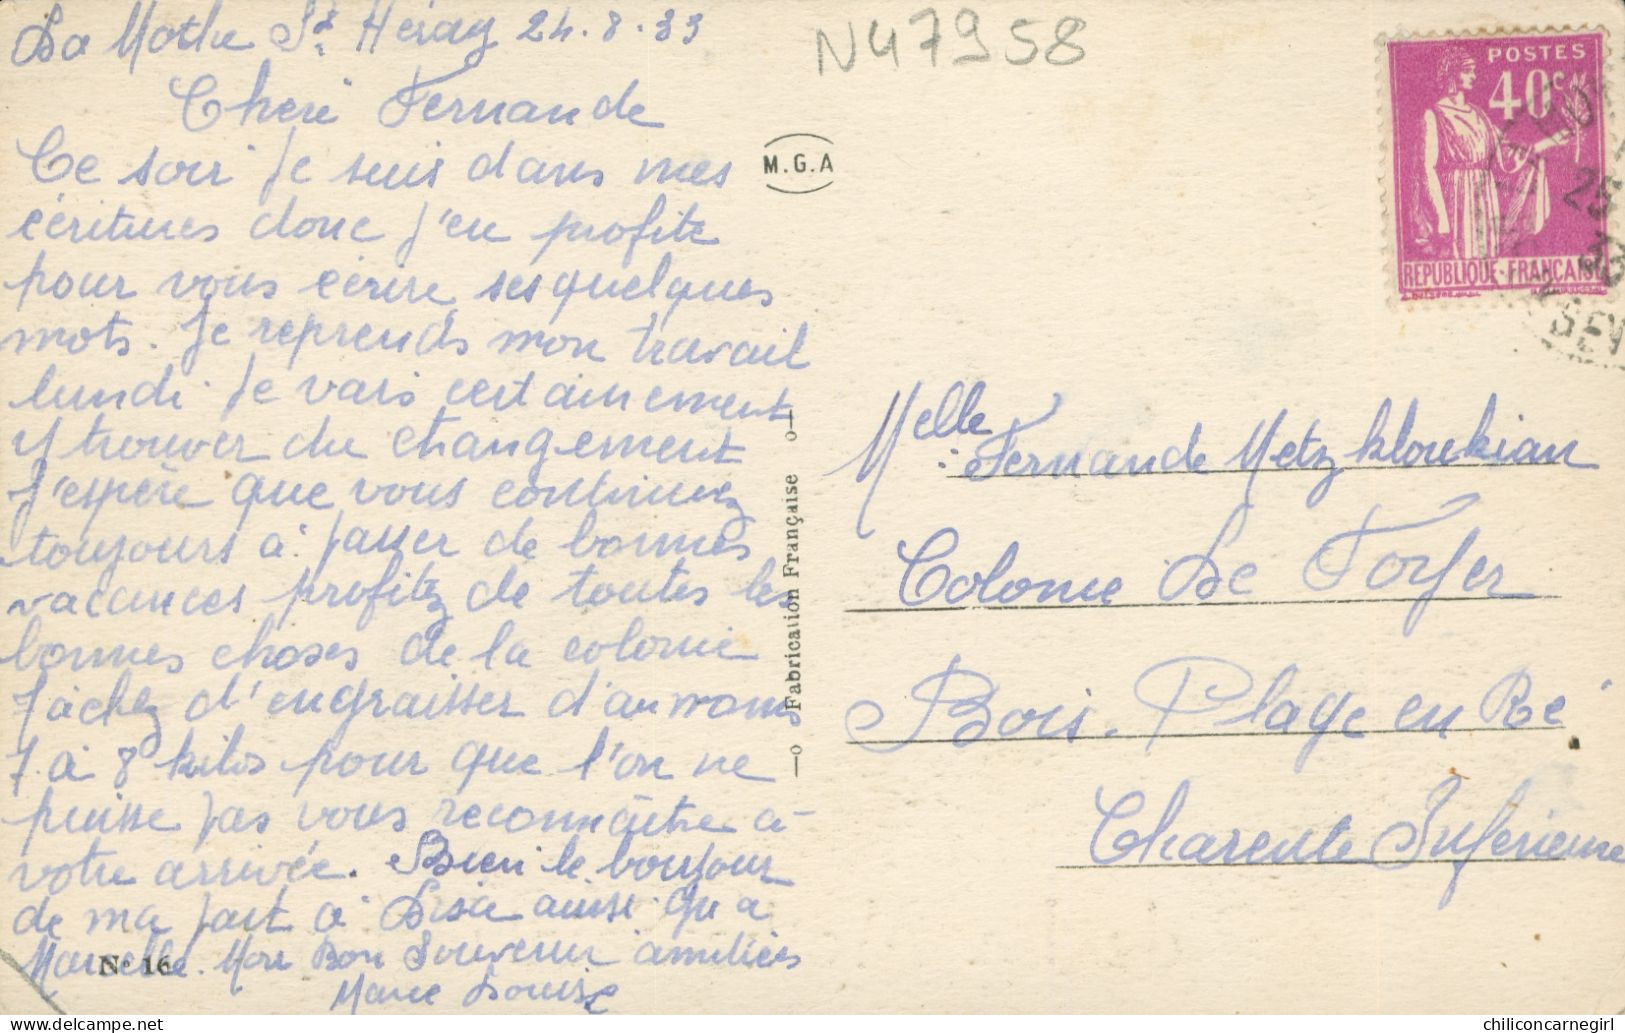 La Mothe St. Héray 24.8.33
N47958
Cheré Fernande
Ce soir Je suis dans mes
écritures donc J'en profite
pour vous écrire ses quelques
mots. Je reprends mon travail
lundi Je vais certainement
y trouver du changement
J'espère que vous continuez
toujours à passer de bonnes
vacances profitez de toutes les
bonnes choses de la colonie
Tâchez d'engraisser d'au moins
7 à 8 kilos pour que l'on ne
puisse pas vous reconnaître à
votre arrivée. Bien le bonjour
de ma part à Lisa ainsi qu'a
Marcelle. Mon Bon Souvenir amitiés
Marie Louise
N° 16
M.G.A
—o Fabrication Française o—
POSTES
40c
REPUBLIQUE FRANÇAISE
25
Melle Fernande Metzkloukian
Colonie Le Foyer
Bois. Plage en Ré
Charente Inférieure
chiliconcarnegirl